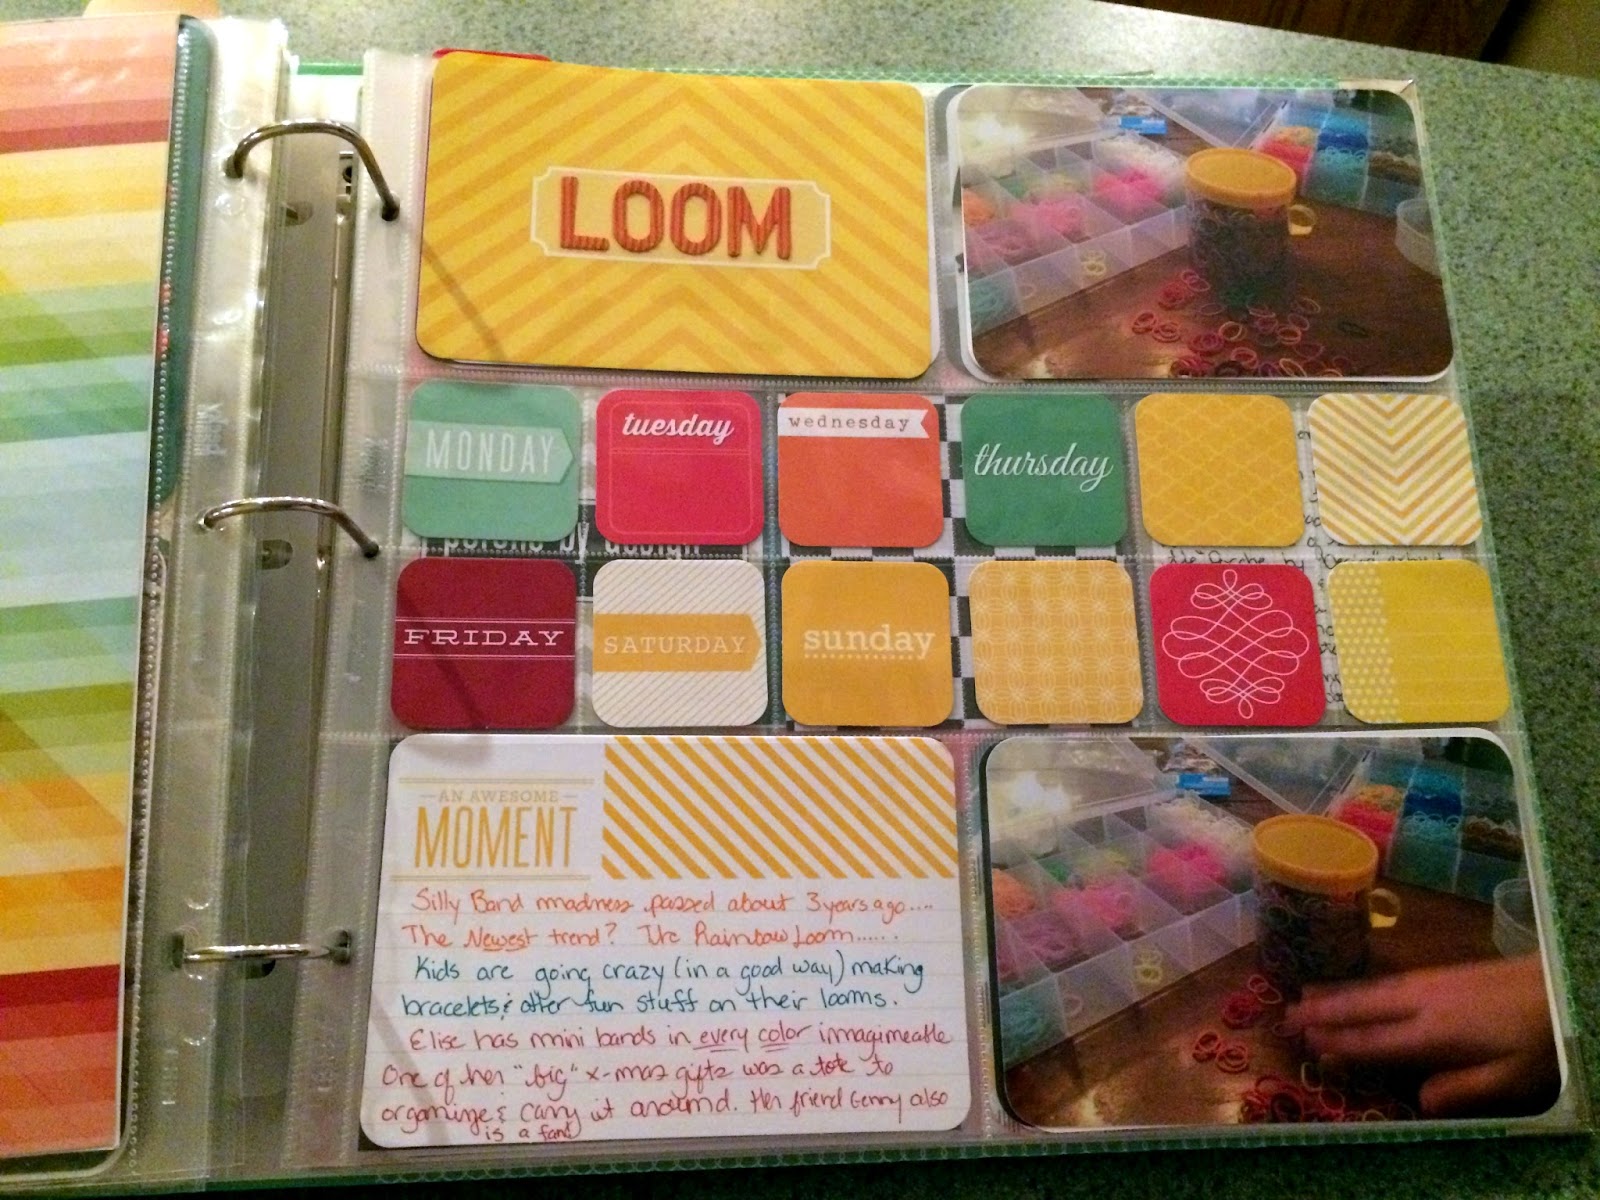 LOOM
MONDAY
tuesday
wednesday
thursday
by design
FRIDAY
SATURDAY
sunday
AN AWESOME
MOMENT
Silly Band madness passed about 3 years ago....
The Newest trend? The Rainbow Loom.....
Kids are going crazy (in a good way) making
bracelets & other fun stuff on their looms.
Elise has mini bands in every color imagimeable
One of her "big" x-mas gifts was a tote to
organize & carry it around. Her friend Genny also
is a fan!